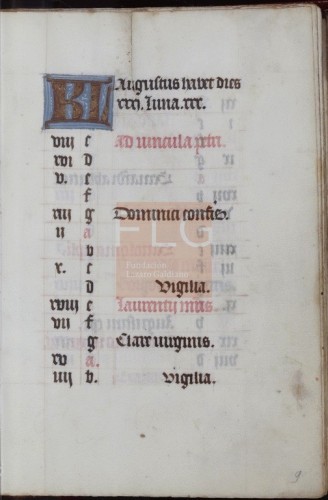 KL Augustus habet dies
xxxj. luna. xxx.
viij c Ad vincula petri.
xvi d
v. e
f
xiij g Dominici confes.
ij a
b
x. c
d Vigilia.
xviij e Laurentij mris
vij f
g Clare virginis.
xv a.
iiij b. Vigilia.
FLG
Fundación
Lázaro Galdiano
9